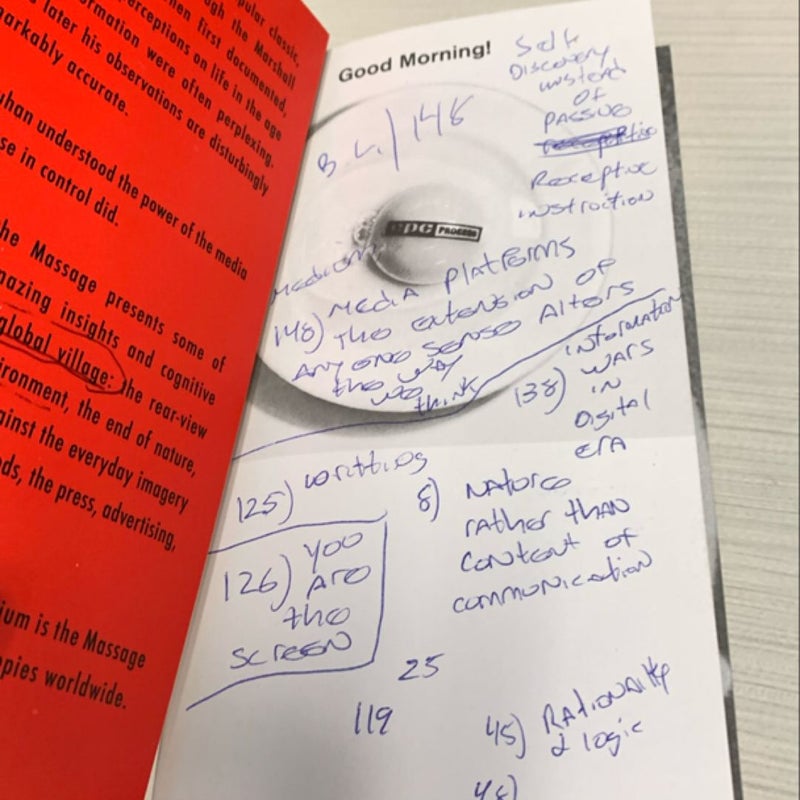 pular classic,
ugh the Marshall
hen first documented,
ormation were often perplexing.
erceptions on life in the age
later his observations are disturbingly
markably accurate.
uhan understood the power of the media
se in control did.
he Massage presents some of
mazing insights and cognitive
global village: the rear-view
ironment, the end of nature,
ainst the everyday imagery
ds, the press, advertising,
ium is the Massage
pies worldwide.
Good Morning!
Self
Discovery
instead
of
passive
Receptive
instruction
B.L./148
PROCESS
Medium
148) Media Platforms
The extension of
any one sense Alters
the way
we
think
138) information
wars
in
Digital
era
125) writting
8) Nature
rather than
content of
communication
126) You
Are
the
screen
25
119
45) Rationality
& logic
48)